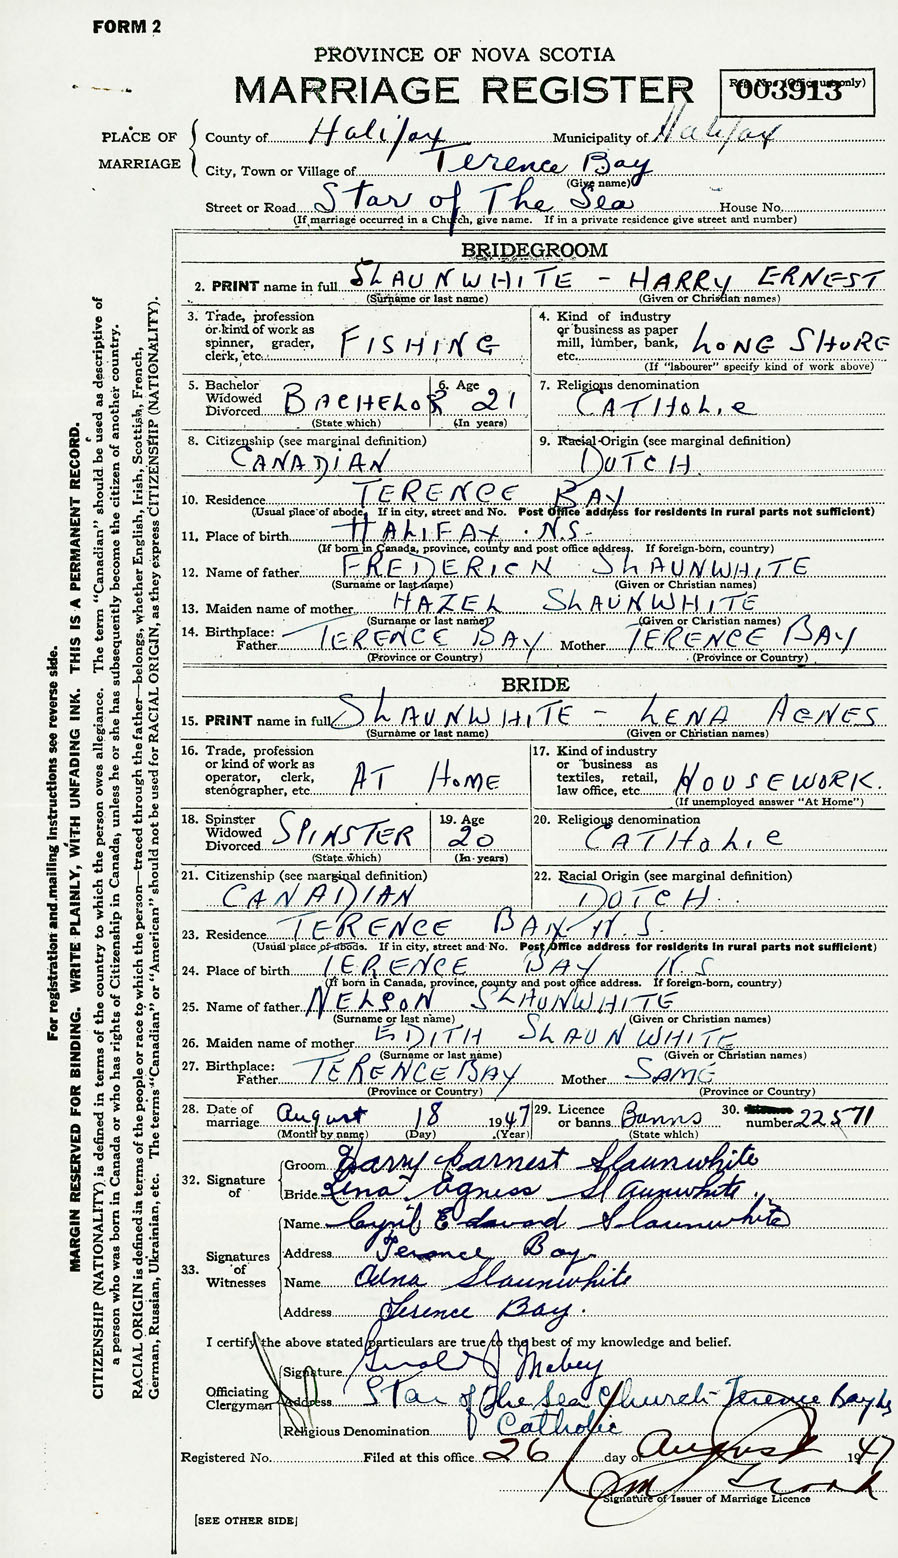 FORM 2
PROVINCE OF NOVA SCOTIA
MARRIAGE REGISTER
Reg. No. (Office use only)
003913
PLACE OF MARRIAGE
County of Halifax Municipality of Halifax
City, Town or Village of Terence Bay
(Give name)
Street or Road Star of The Sea House No.
(If marriage occurred in a Church, give name. If in a private residence give street and number)
BRIDEGROOM
2. PRINT name in full SLAUNWHITE - HARRY ERNEST
(Surname or last name) (Given or Christian names)
3. Trade, profession or kind of work as spinner, grader, clerk, etc. FISHING
4. Kind of industry or business as paper mill, lumber, bank, etc. LONG SHORE
(If "labourer" specify kind of work above)
5. Bachelor Widowed Divorced BACHELOR
(State which)
6. Age 21
(In years)
7. Religious denomination
CATHOLIC
8. Citizenship (see marginal definition)
CANADIAN
9. Racial Origin (see marginal definition)
DUTCH
10. Residence TERENCE BAY
(Usual place of abode. If in city, street and No. Post Office address for residents in rural parts not sufficient)
11. Place of birth HALIFAX . N.S.
(If born in Canada, province, county and post office address. If foreign-born, country)
12. Name of father FREDERICK SLAUNWHITE
(Surname or last name) (Given or Christian names)
13. Maiden name of mother HAZEL SLAUNWHITE
(Surname or last name) (Given or Christian names)
14. Birthplace: Father TERENCE BAY Mother TERENCE BAY
(Province or Country) (Province or Country)
BRIDE
15. PRINT name in full SLAUNWHITE - LENA AGNES
(Surname or last name) (Given or Christian names)
16. Trade, profession or kind of work as operator, clerk, stenographer, etc. AT HOME
17. Kind of industry or business as textiles, retail, law office, etc. HOUSEWORK.
(If unemployed answer "At Home")
18. Spinster Widowed Divorced SPINSTER
(State which)
19. Age 20
(In years)
20. Religious denomination
CATHOLIC
21. Citizenship (see marginal definition)
CANADIAN
22. Racial Origin (see marginal definition)
DUTCH.
23. Residence TERENCE BAY N.S.
(Usual place of abode. If in city, street and No. Post Office address for residents in rural parts not sufficient)
24. Place of birth TERENCE BAY N.S
(If born in Canada, province, county and post office address. If foreign-born, country)
25. Name of father NELSON SLAUNWHITE
(Surname or last name) (Given or Christian names)
26. Maiden name of mother EDITH SLAUNWHITE
(Surname or last name) (Given or Christian names)
27. Birthplace: Father TERENCE BAY Mother SAME
(Province or Country) (Province or Country)
28. Date of marriage August 18 1947
(Month by name) (Day) (Year)
29. Licence or banns Banns
(State which)
30. number 22571
32. Signature of
Groom Harry Earnest Slaunwhite
Bride Lena Agness Slaunwhite.
33. Signatures of Witnesses
Name Cyril Edward Slaunwhite
Address Terence Bay
Name Edna Slaunwhite
Address Terence Bay.
I certify the above stated particulars are true to the best of my knowledge and belief.
Officiating Clergyman
Signature Gerald J Mabey
Address Star of the Sea Church - Terence Bay
Religious Denomination Catholic
Registered No. Filed at this office 26 day of August 1947
Signature of Issuer of Marriage Licence
[SEE OTHER SIDE]
For registration and mailing instructions see reverse side.
MARGIN RESERVED FOR BINDING. WRITE PLAINLY, WITH UNFADING INK. THIS IS A PERMANENT RECORD.
CITIZENSHIP (NATIONALITY) is defined in terms of the country to which the person owes allegiance. The term "Canadian" should be used as descriptive of
a person who was born in Canada or who has rights of Citizenship in Canada, unless he or she has subsequently become the citizen of another country.
RACIAL ORIGIN is defined in terms of the people or race to which the person—traced through the father—belongs, whether English, Irish, Scottish, French,
German, Russian, Ukrainian, etc. The terms "Canadian" or "American" should not be used for RACIAL ORIGIN, as they express CITIZENSHIP (NATIONALITY).